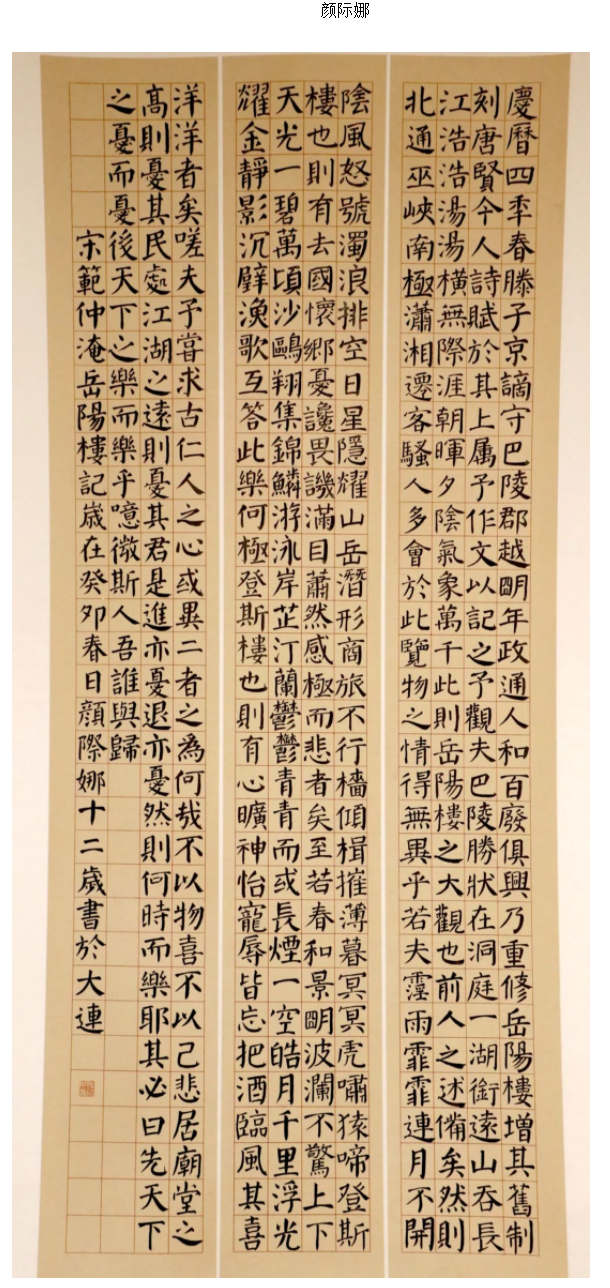 颜际娜
慶曆四年春滕子京謫守巴陵郡越明年政通人和百廢俱興乃重修岳陽樓增其舊制
刻唐賢今人詩賦於其上属予作文以記之予觀夫巴陵勝狀在洞庭一湖銜遠山吞長
江浩浩湯湯橫無際涯朝暉夕陰氣象萬千此則岳陽樓之大觀也前人之述備矣然則
北通巫峽南極瀟湘遷客騷人多會於此覽物之情得無異乎若夫霪雨霏霏連月不開
陰風怒號濁浪排空日星隱耀山岳潛形商旅不行檣傾楫摧薄暮冥冥虎嘯猿啼登斯
樓也則有去國懷鄉憂讒畏譏滿目蕭然感極而悲者矣至若春和景明波瀾不驚上下
天光一碧萬頃沙鷗翔集錦鱗游泳岸芷汀蘭鬱鬱青青而或長煙一空皓月千里浮光
耀金靜影沉璧漁歌互答此樂何極登斯樓也則有心曠神怡寵辱皆忘把酒臨風其喜
洋洋者矣嗟夫予嘗求古仁人之心或異二者之為何哉不以物喜不以己悲居廟堂之
高則憂其民處江湖之遠則憂其君是進亦憂退亦憂然則何時而樂耶其必曰先天下
之憂而憂後天下之樂而樂乎噫微斯人吾誰與歸
宋範仲淹岳陽樓記歲在癸卯春日顏際娜十二歲書於大連